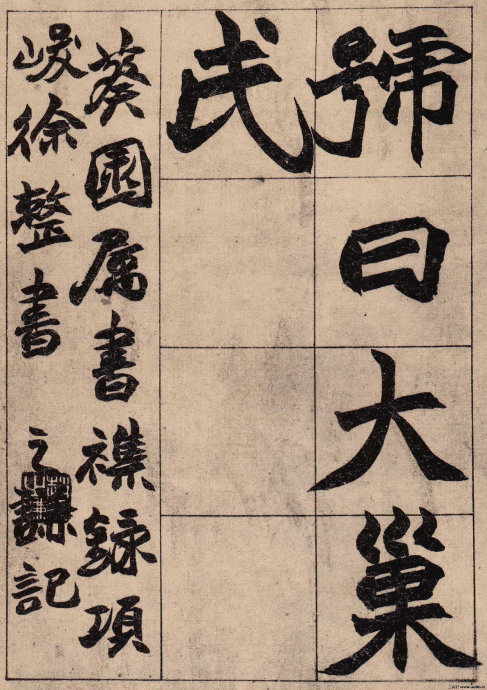 號曰大巢
氏
葵園属書襍錄項
峻徐整書 之謙記